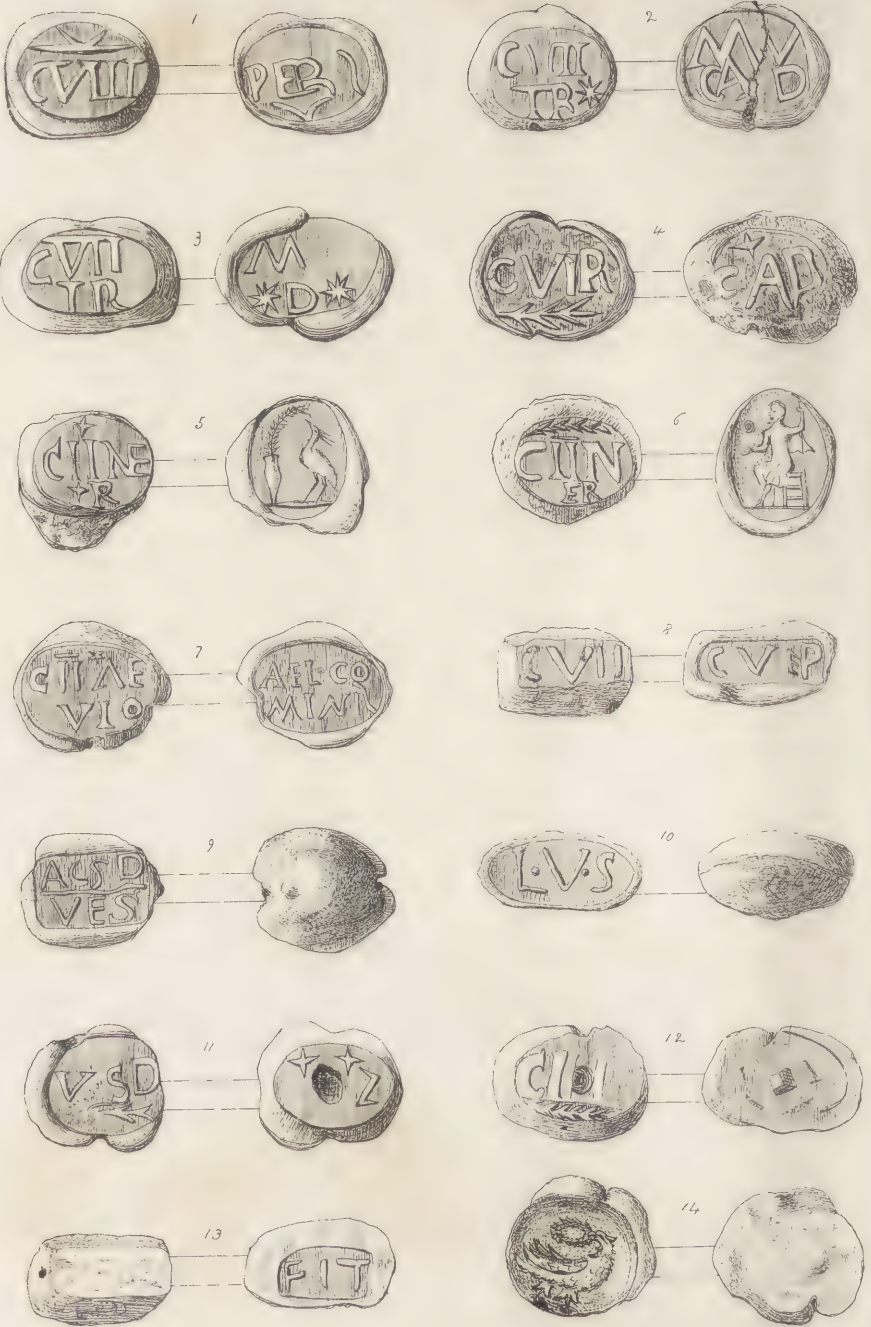 1
CVIII
PER
2
CVIII
TR
MV
CAD
3
CVII
TR
M
D
4
CVIR
CAP
5
CIINE
R
6
CIIN
ER
7
CIIAE
VIO
AEL·CO
MINI
8
CVII
CVEP
9
ALSD
VES
10
L·V·S
11
VSD
Z
12
CII
13
FIT
14